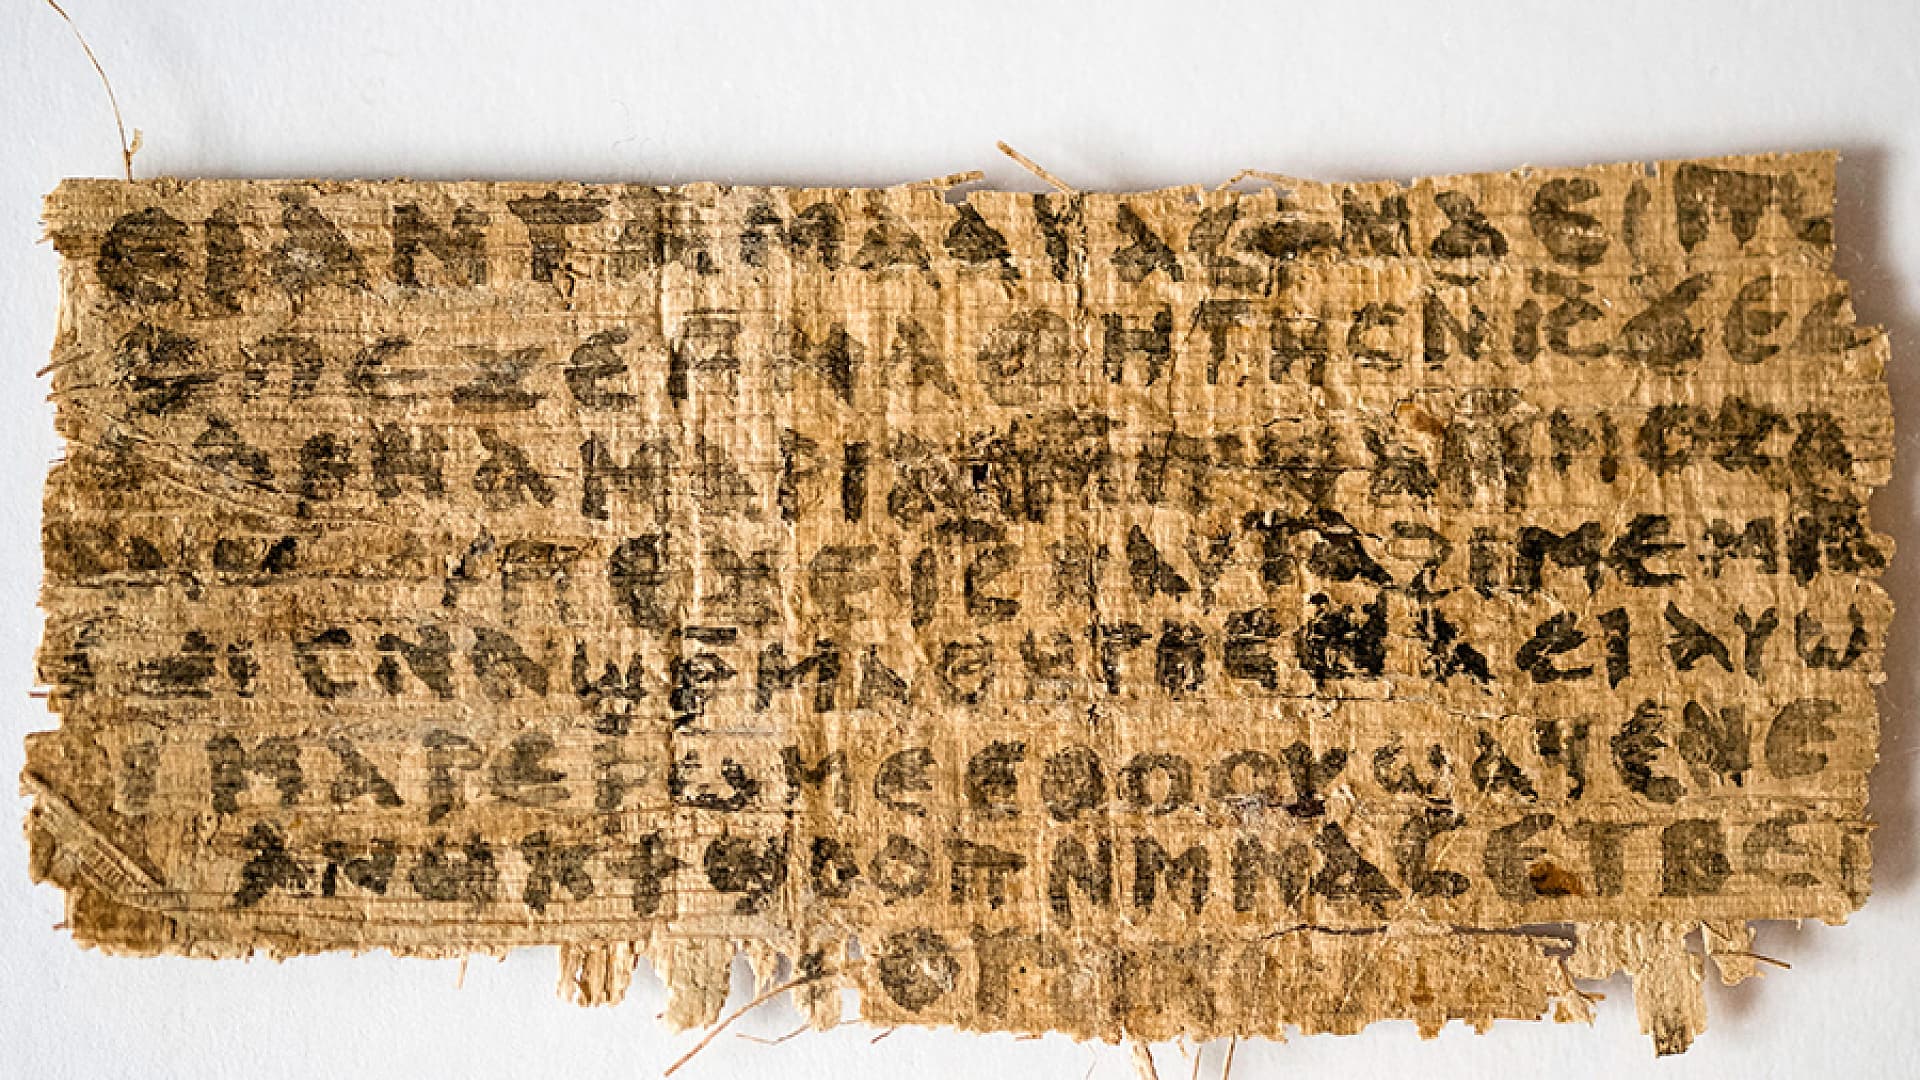 ⲉⲓ ⲁⲛ ⲧⲁⲙⲁⲁⲩ ⲁⲥϯ ⲛⲁⲉⲓ ⲡ
ⲡⲉϫⲉ ⲙⲙⲁⲑⲏⲧⲏⲥ ⲛⲓ̅ⲥ̅ ϫⲉ ⲥ
ⲁⲣⲛⲁ ⲙⲁⲣⲓⲁⲙ
ⲡⲉϫⲉ ⲓ̅ⲥ̅ ⲛⲁⲩ ⲧⲁϩⲓⲙⲉ ⲙⲛ
ⲥⲛⲁϣⲣ̅ⲙⲁⲑⲏⲧⲏⲥ ⲛⲁⲉⲓ ⲁⲩⲱ
ⲓ ⲙⲁⲣⲉⲣⲱⲙⲉ ⲉⲑⲟⲟⲩ ϣⲁϥⲉ ⲛⲉ
ⲁⲛⲟⲕ ϯϣⲟⲟⲡ ⲛⲙⲙⲁⲥ ⲉⲧⲃⲉ ⲡ